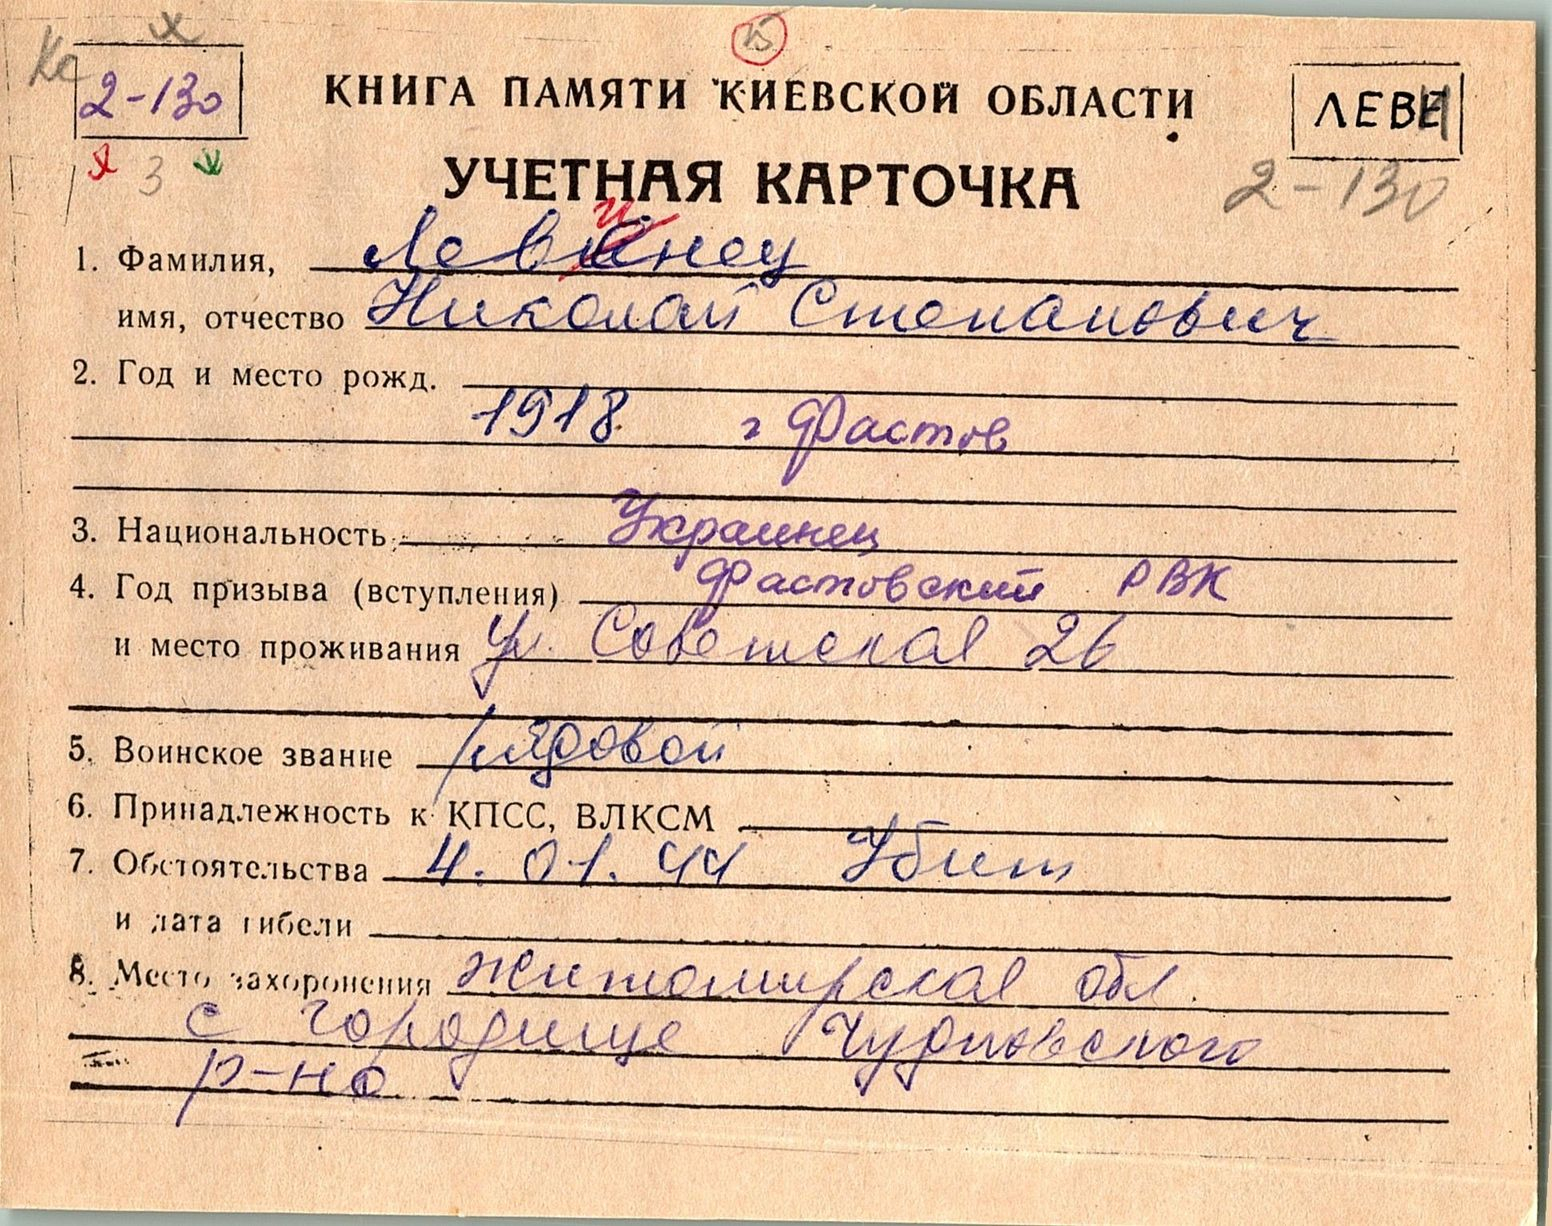 2-130
15
КНИГА ПАМЯТИ КИЕВСКОЙ ОБЛАСТИ
ЛЕВЕ
3
УЧЕТНАЯ КАРТОЧКА
2-130
1. Фамилия, Левинец
имя, отчество Николай Степанович
2. Год и место рожд.
1918 г Фастов
3. Национальность Украинец
4. Год призыва (вступления) Фастовский РВК
и место проживания ул. Советская 26
5. Воинское звание рядовой
6. Принадлежность к КПСС, ВЛКСМ
7. Обстоятельства 4. 01. 44 Убит
и дата гибели
8. Место захоронения Житомирская обл.
с Городище Чудновского
р-на